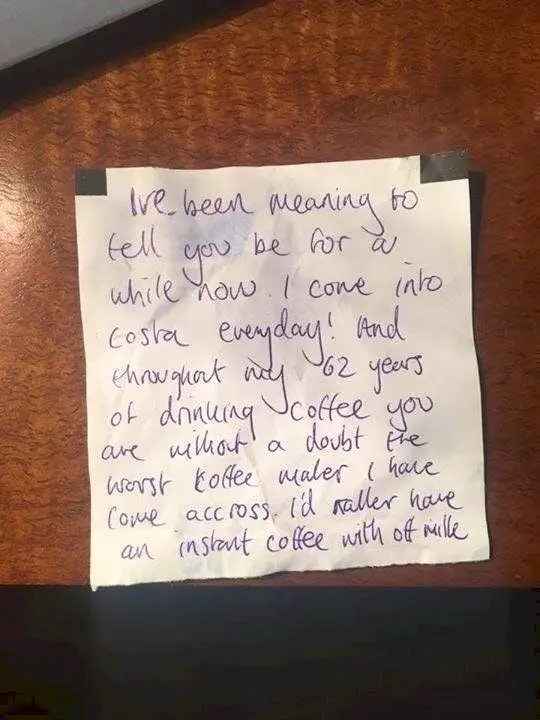 Ive been meaning to
tell you be for a
while now. I come into
Costa everyday! And
throughout my 62 years
of drinking coffee you
are without a doubt the
worst koffee maker I have
come accross. I'd rather have
an instant coffee with off milk